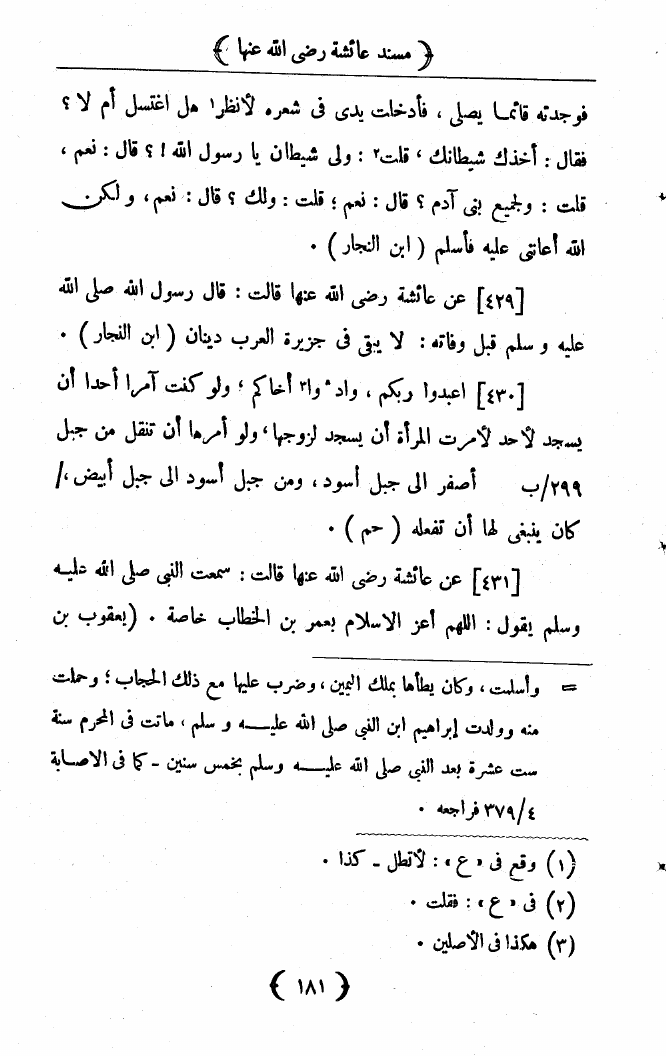 ﴿ مسند عائشة رضى الله عنها ﴾
فوجدته قائما يصلى ، فأدخلت يدى فى شعره لأنظر١ هل اغتسل أم لا ؟
فقال : أخذك شيطانك ، قلت٢ : ولى شيطان يا رسول الله ! ؟ قال : نعم ،
قلت : ولجميع بنى آدم ؟ قال : نعم ؛ قلت : ولك ؟ قال : نعم ، و لكن
الله أعاننى عليه فأسلم ( ابن النجار ) .
[٤٢٩] عن عائشة رضى الله عنها قالت : قال رسول الله صلى الله
عليه و سلم قبل وفاته : لا يبقى فى جزيرة العرب دينان ( ابن النجار ) .
[٤٣٠] اعبدوا ربكم ، وادءوا٣ أخاكم ؛ ولو كنت آمرا أحدا أن
يسجد لأحد لأمرت المرأة أن يسجد لزوجها ، ولو أمرها أن تنقل من جبل
٢٩٩/ب أصفر الى جبل أسود ، ومن جبل أسود الى جبل أبيض ، /
كان ينبغى لها أن تفعله ( حم ) .
[٤٣١] عن عائشة رضى الله عنها قالت : سمعت النبى صلى الله عليه
وسلم يقول : اللهم أعز الاسلام بعمر بن الخطاب خاصة . (يعقوب بن
= وأسلمت ، وكان يطأها بملك اليمين ، وضرب عليها مع ذلك الحجاب ؛ وحملت
منه وولدت إبراهيم ابن النبى صلى الله عليه و سلم ، ماتت فى المحرم سنة
ست عشرة بعد النبى صلى الله عليه وسلم بخمس سنين - كما فى الاصابة
٣٧٩/٤ فراجعه .
(١) وقع فى « ع » : لأتطل - كذا .
(٢) فى « ع » : فقلت .
(٣) هكذا فى الأصلين .
﴿ ١٨١ ﴾